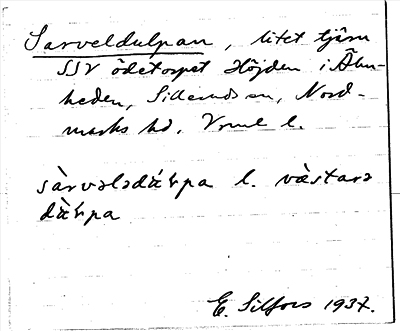 Sarveldulpan, litet tjärn
SSV ödetorpet Höjden i Åm-
heden, Sillerudsn, Nord-
marks hd, Vrml l.
sàrvələdúɫpa l. vä̀stərə
dúɫpa
E. Silfors 1937.